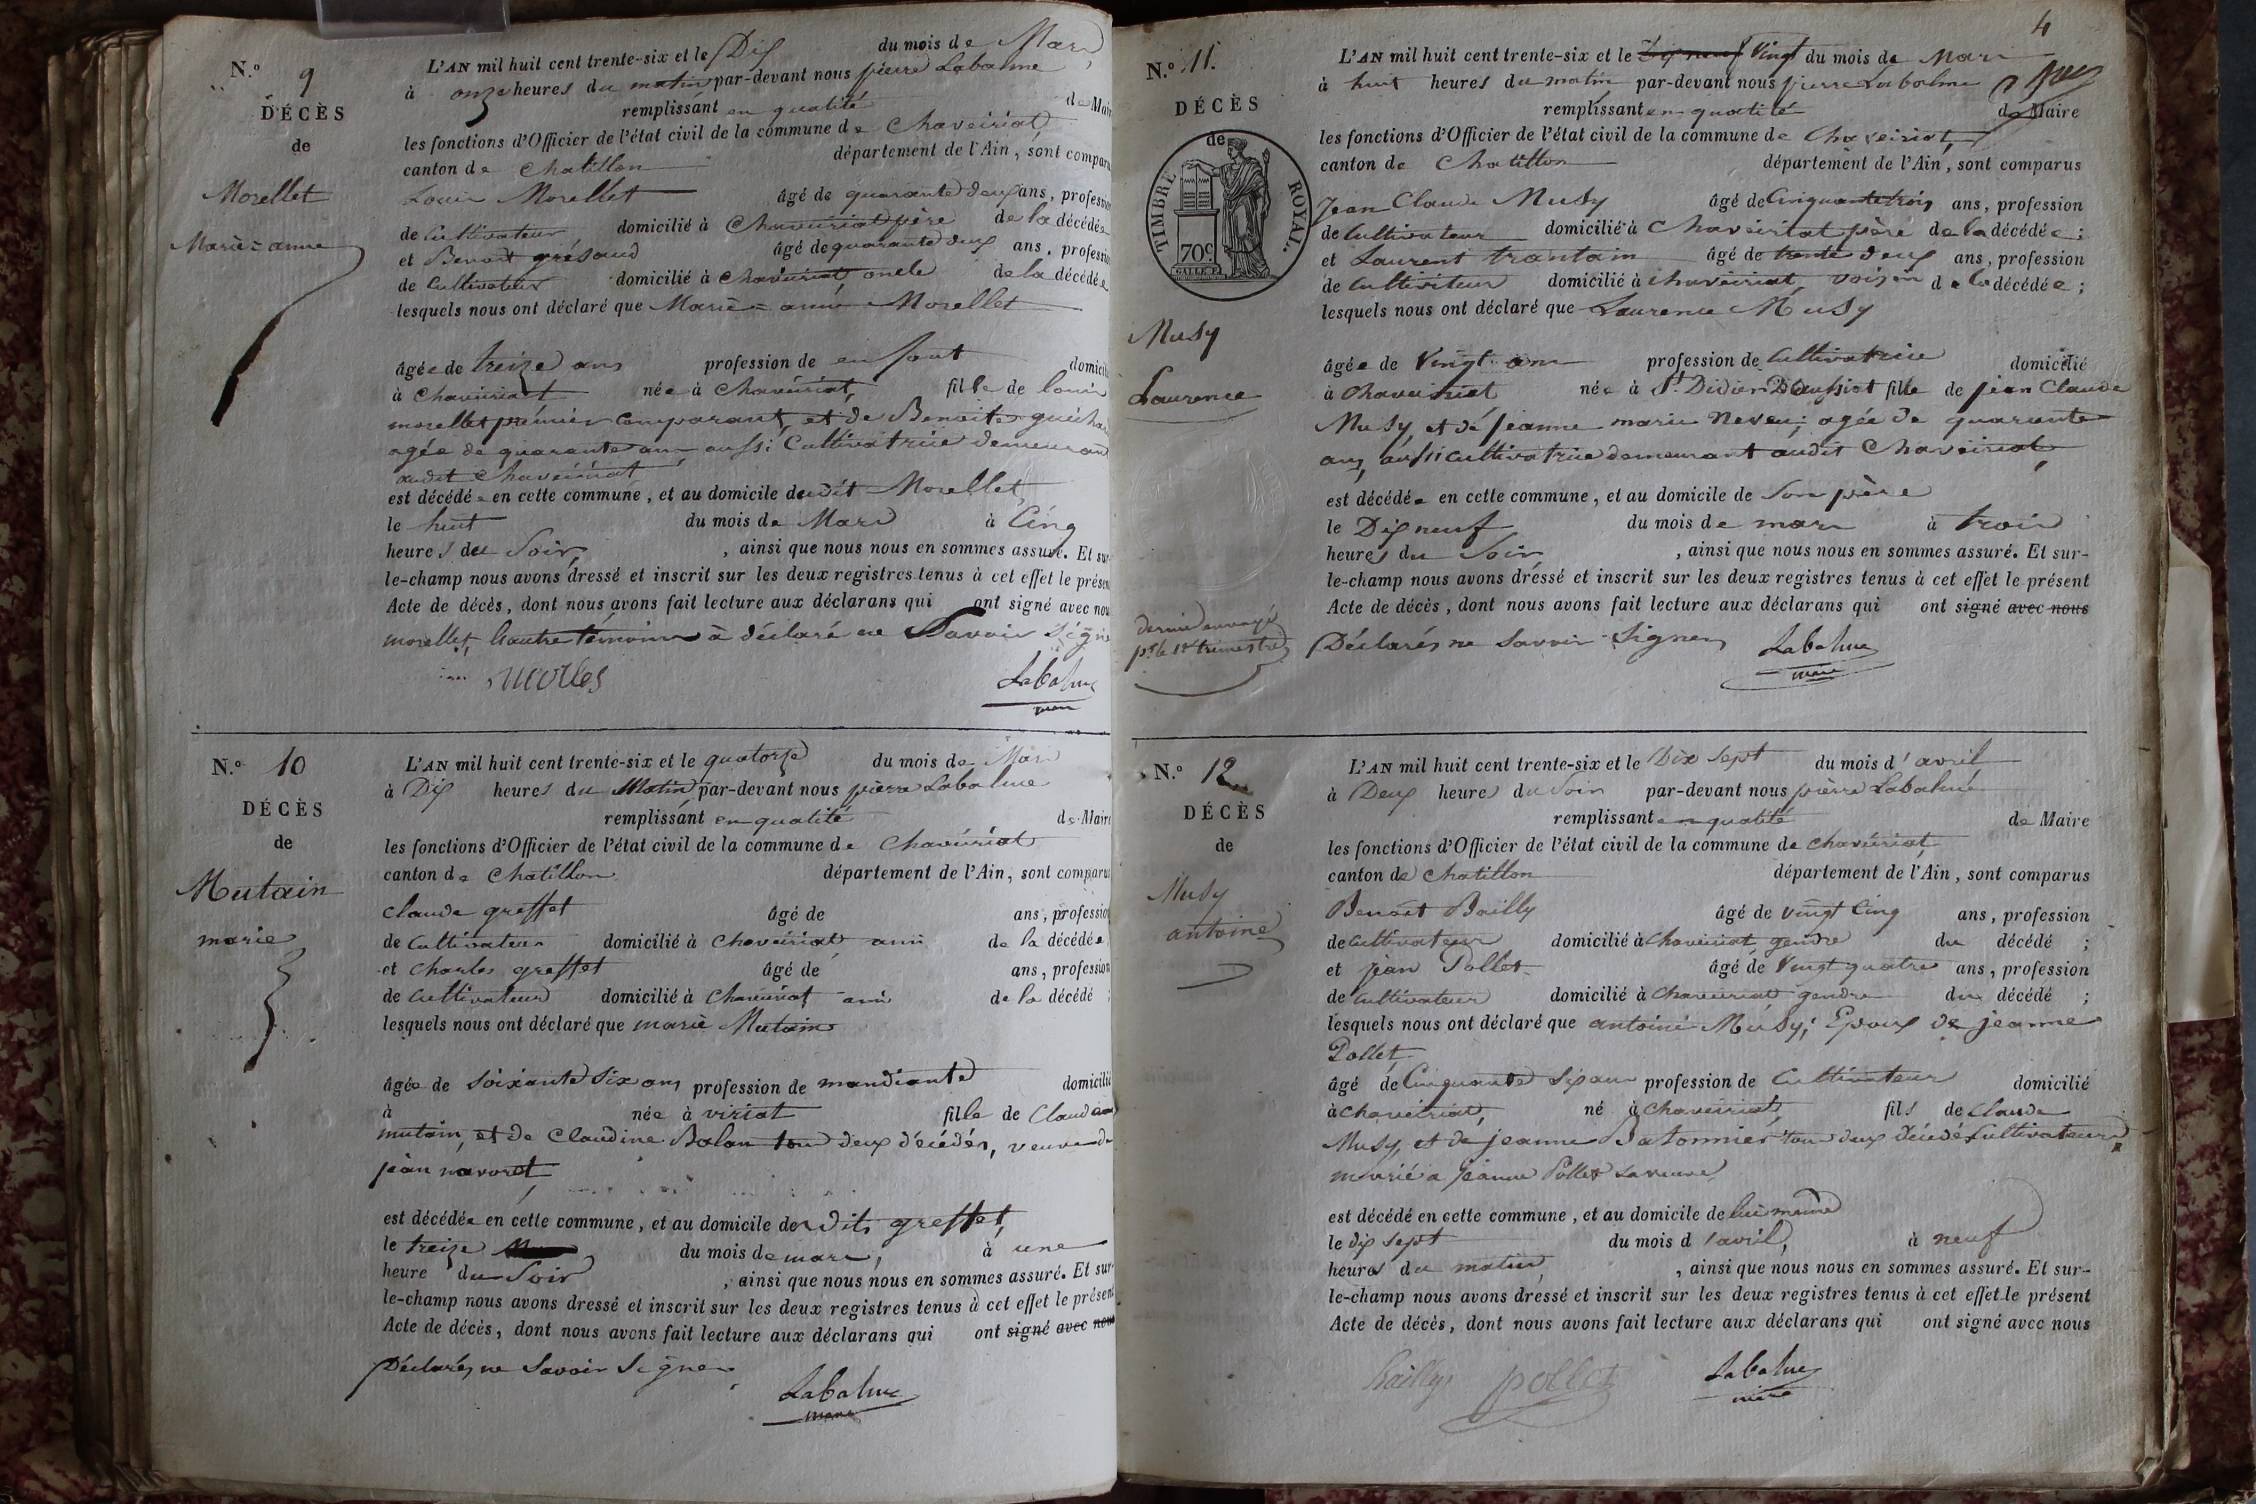 N.º 9
DÉCÈS
de
Morellet
Marie=anne
L'AN mil huit cent trente-six et le Dix du mois de Mars
à onze heures du matin par-devant nous pierre Labalme
remplissant en qualité de Maire
les fonctions d'Officier de l'état civil de la commune de Chaveiriat
canton de Chatillon département de l'Ain, sont comparus
Louis Morellet âgé de quarante deux ans, profession
de Cultivateur domicilié à Chaveiriat père de la décédée
et Benoit grésaud âgé de quarante deux ans, profession
de Cultivateur domicilié à Chaveiriat, oncle de la décédée
lesquels nous ont déclaré que Marie=anne Morellet
âgée de treize ans profession de enfant domicilié
à Chaveiriat née à Chaveiriat, fille de louis
morellet prémier comparant, et de Benoite
agée de quarante ans aussi Cultivatrice demeurant
audit Chaveiriat
est décédée en cette commune, et au domicile dudit Morellet,
le huit du mois de Mars à Cinq
heures du Soir, , ainsi que nous nous en sommes assuré. Et sur-
le-champ nous avons dressé et inscrit sur les deux registres tenus à cet effet le présent
Acte de décès, dont nous avons fait lecture aux déclarans qui ont signé avec nous
morellet, l'autre témoin à déclaré ne Savoir Signé
Labalme
maire
N.º 10
DÉCÈS
de
Mutain
marie
L'AN mil huit cent trente-six et le quatorze du mois de Mars
à Dix heures du Matin par-devant nous pierre Labalme
remplissant en qualité de Maire
les fonctions d'Officier de l'état civil de la commune de Chaveiriat
canton de Chatillon département de l'Ain, sont comparus
Claude greffet âgé de ans, profession
de Cultivateur domicilié à Chaveiriat ami de la décédée
et Charles greffet âgé de ans, profession
de Cultivateur domicilié à Chaveiriat ami de la décédé ;
lesquels nous ont déclaré que marie Mutain
âgée de Soixante Six ans profession de mandiante domicilié
à née à viriat fille de Claude
mutain, et de Claudine Balan tou deux décédés, veuve de
jean navoret,
est décédée en cette commune, et au domicile des dits greffet,
le treize du mois de mars, à une
heure du Soir , ainsi que nous nous en sommes assuré. Et sur-
le-champ nous avons dressé et inscrit sur les deux registres tenus à cet effet le présent
Acte de décès, dont nous avons fait lecture aux déclarans qui ont signé avec nous
Déclarés ne Savoir Signer
Labalme
maire
4
N.º 11.
DÉCÈS
de
TIMBRE ROYAL.
70c.
Musy
Laurence
dernier envoyé
pr le 1er trimestre
L'AN mil huit cent trente-six et le Dix neuf Vingt du mois de Mars
à huit heures du matin par-devant nous pierre Labalme
remplissant en qualité de Maire
les fonctions d'Officier de l'état civil de la commune de Chaveiriat,
canton de Chatillon département de l'Ain, sont comparus
Jean Claude Musy âgé de Cinquante trois ans, profession
de Cultivateur domicilié à Chaveiriat père de la décédée ;
et Laurent trantain âgé de trente deux ans, profession
de Cultivateur domicilié à Chaveiriat, voisin de la décédée ;
lesquels nous ont déclaré que Laurence Musy
âgée de Vingt ans profession de Cultivatrice domicilié
à Chaveiriat née à St Didier D'aussiat fille de jean Claude
Musy, et de jeanne marie Neveu, agée de quarante
ans, aussi cultivatrice demeurant audit Chaveiriat,
est décédée en cette commune, et au domicile de Son père
le Dix neuf du mois de mars à trois
heures du Soir , ainsi que nous nous en sommes assuré. Et sur-
le-champ nous avons dressé et inscrit sur les deux registres tenus à cet effet le présent
Acte de décès, dont nous avons fait lecture aux déclarans qui ont signé avec nous
Déclarés ne Savoir Signer
Labalme
maire
N.º 12
DÉCÈS
de
Musy
antoine
L'AN mil huit cent trente-six et le Dix Sept du mois d'avril
à Deux heures du Soir par-devant nous pierre Labalme
remplissant en qualité de Maire
les fonctions d'Officier de l'état civil de la commune de Chaveiriat
canton de Chatillon département de l'Ain, sont comparus
Benoit Bailly âgé de vingt Cinq ans, profession
de Cultivateur domicilié à Chaveiriat, gendre du décédé ;
et jean Pollet âgé de Vingt quatre ans, profession
de Cultivateur domicilié à Chaveiriat gendre du décédé ;
lesquels nous ont déclaré que antoine Musy, Epoux de jeanne
Pollet
âgé de Cinquante Six ans profession de Cultivateur domicilié
à Chaveiriat, né à Chaveiriat, fils de Claude
Musy, et de jeanne Batonnier tou deux décédés Cultivateurs
marié a jeanne Pollet Sa veuve
est décédé en cette commune, et au domicile de lui même
le dix sept du mois d'avril, à neuf
heures du matin , ainsi que nous nous en sommes assuré. Et sur-
le-champ nous avons dressé et inscrit sur les deux registres tenus à cet effet le présent
Acte de décès, dont nous avons fait lecture aux déclarans qui ont signé avec nous
Bailly pollet Labalme
maire